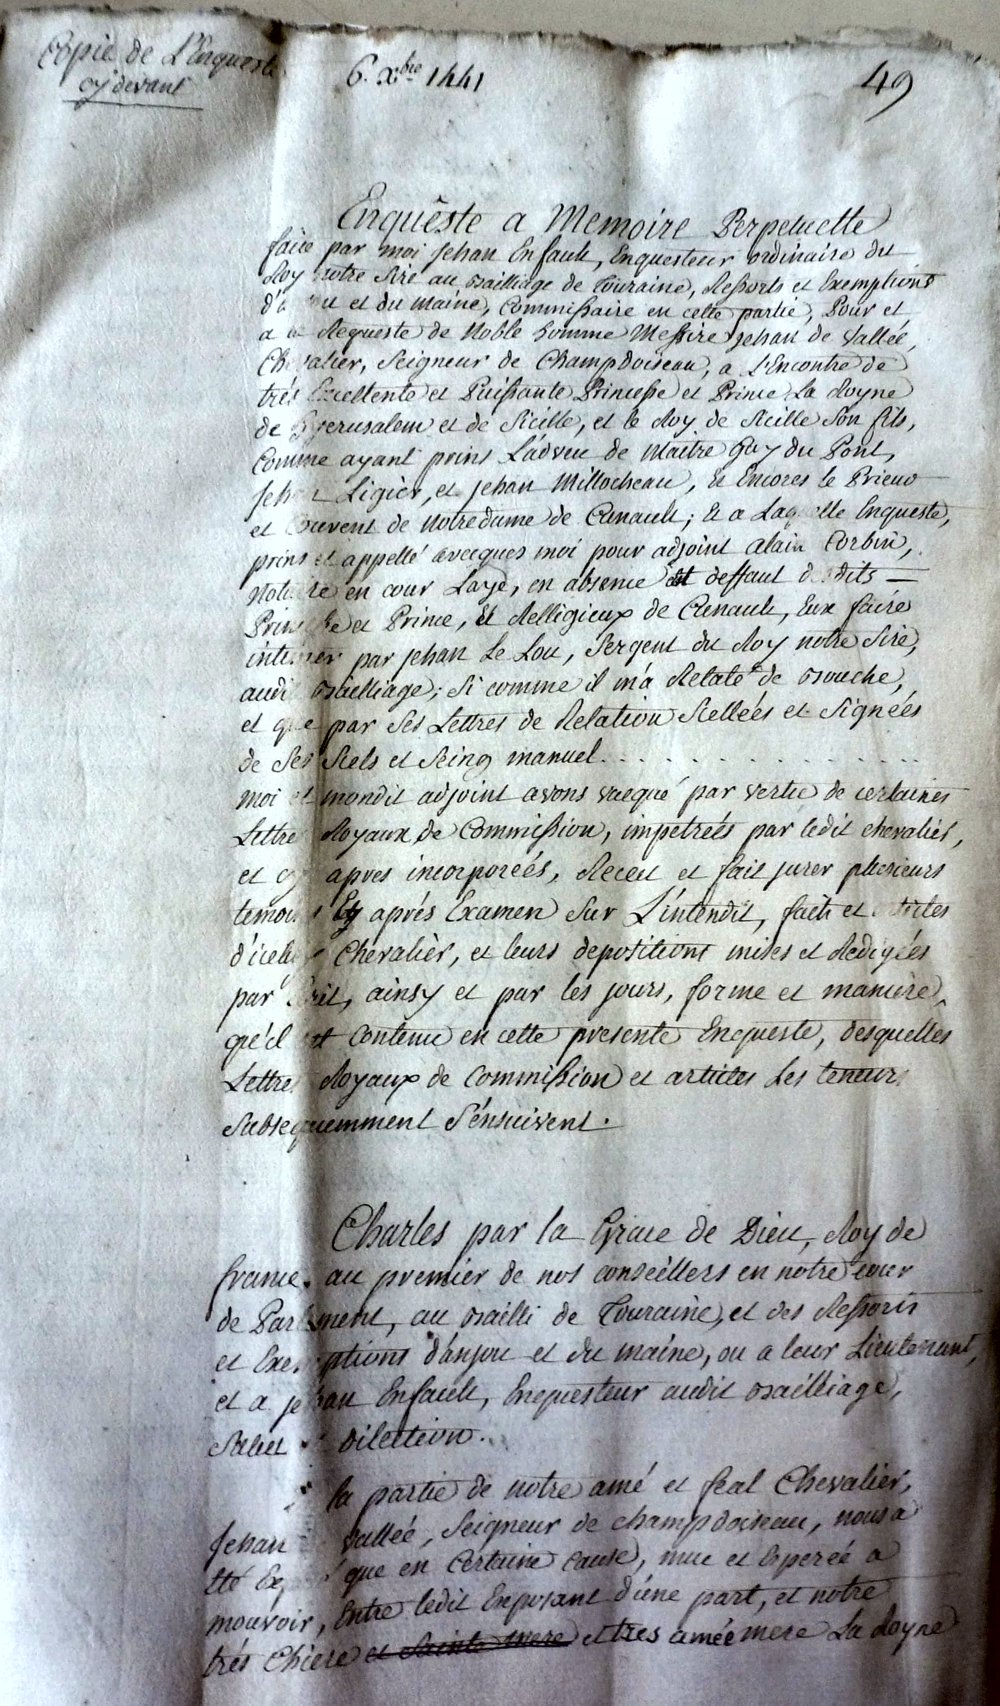 Copie de L'Enqueste
cy devant
6. Xbre 1441
49
Enquêste a Memoire Perpetuelle
faite par moi Jehan Enfault, Enquesteur ordinaire du
Roy notre Sire au Bailliage de Touraine, Ressorts et Exemptions
et du Maine, Commissaire en cette partie, Pour et
a la Requeste de Noble homme Messire Jehan de Vallée,
Chevalier, Seigneur de Champdoiseau, a L'Encontre de
trés Excellente et Puissante Princesse et Prince La Royne
de Hyerusalem et de Sicille, et le Roy de Sicille Son fils,
Comme ayant prins L'adveu de Maitre Guy du Pont,
Jehan Ligier, et Jehan Millocheau, Et Encores le Prieur
et Couvent de Notredame de Cunault; Et a Laquelle Enqueste,
prins et appellé avecques moi pour adjoint Alain Corbin,
Notaire en cour Laye, en absence et deffaut desdits
Princesse et Prince, Et Relligieux de Cunault, Eux faire
intimer par Jehan Le Lou, Sergent du Roy notre Sire,
audit Bailliage; Si comme il m'a Relaté de Bouche,
et que par Ses Lettres de Relation Scellées et Signées
de Ses Scels et Seing manuel. . . . . . . . . . . . .
moi et mondit adjoint avons vacqué par vertu de certaines
Lettres Royaux de Commission, impetrées par ledit chevalier,
et cy apres incorporeés, Receu et fait jurer plusieurs
temoins Et aprés Examen Sur L'intendit, faits et articles
d'icelui Chevalier, et leurs depositions mises et Redigées
par Ecrit, ainsy et par les jours, forme et maniere
qu'il est Contenu en cette presente Enqueste, desquelles
Lettres Royaux de Commission et articles Les teneurs
Subsequemment S'énsuivent.
Charles par la Grace de Dieu, Roy de
france. au premier de nos conseillers en notre cour
de Parlement, au Bailli de Touraine, et des Ressorts
et Exemptions d'anjou et du maine, ou a leur Lieutenant,
et a Jehan Enfault, Enquesteur audit Bailliage,
Salut et Dilection.
la partie de notre amé et feal Chevalier,
Jehan de Vallée, Seigneur de champdoiseau, nous a
été Exposé que en Certaine Cause, mue et Esperée a
mouvoir, Entre ledit Exposant d'une part, et notre
trés Chiere et Sainte mere et tres amée mere La Royne